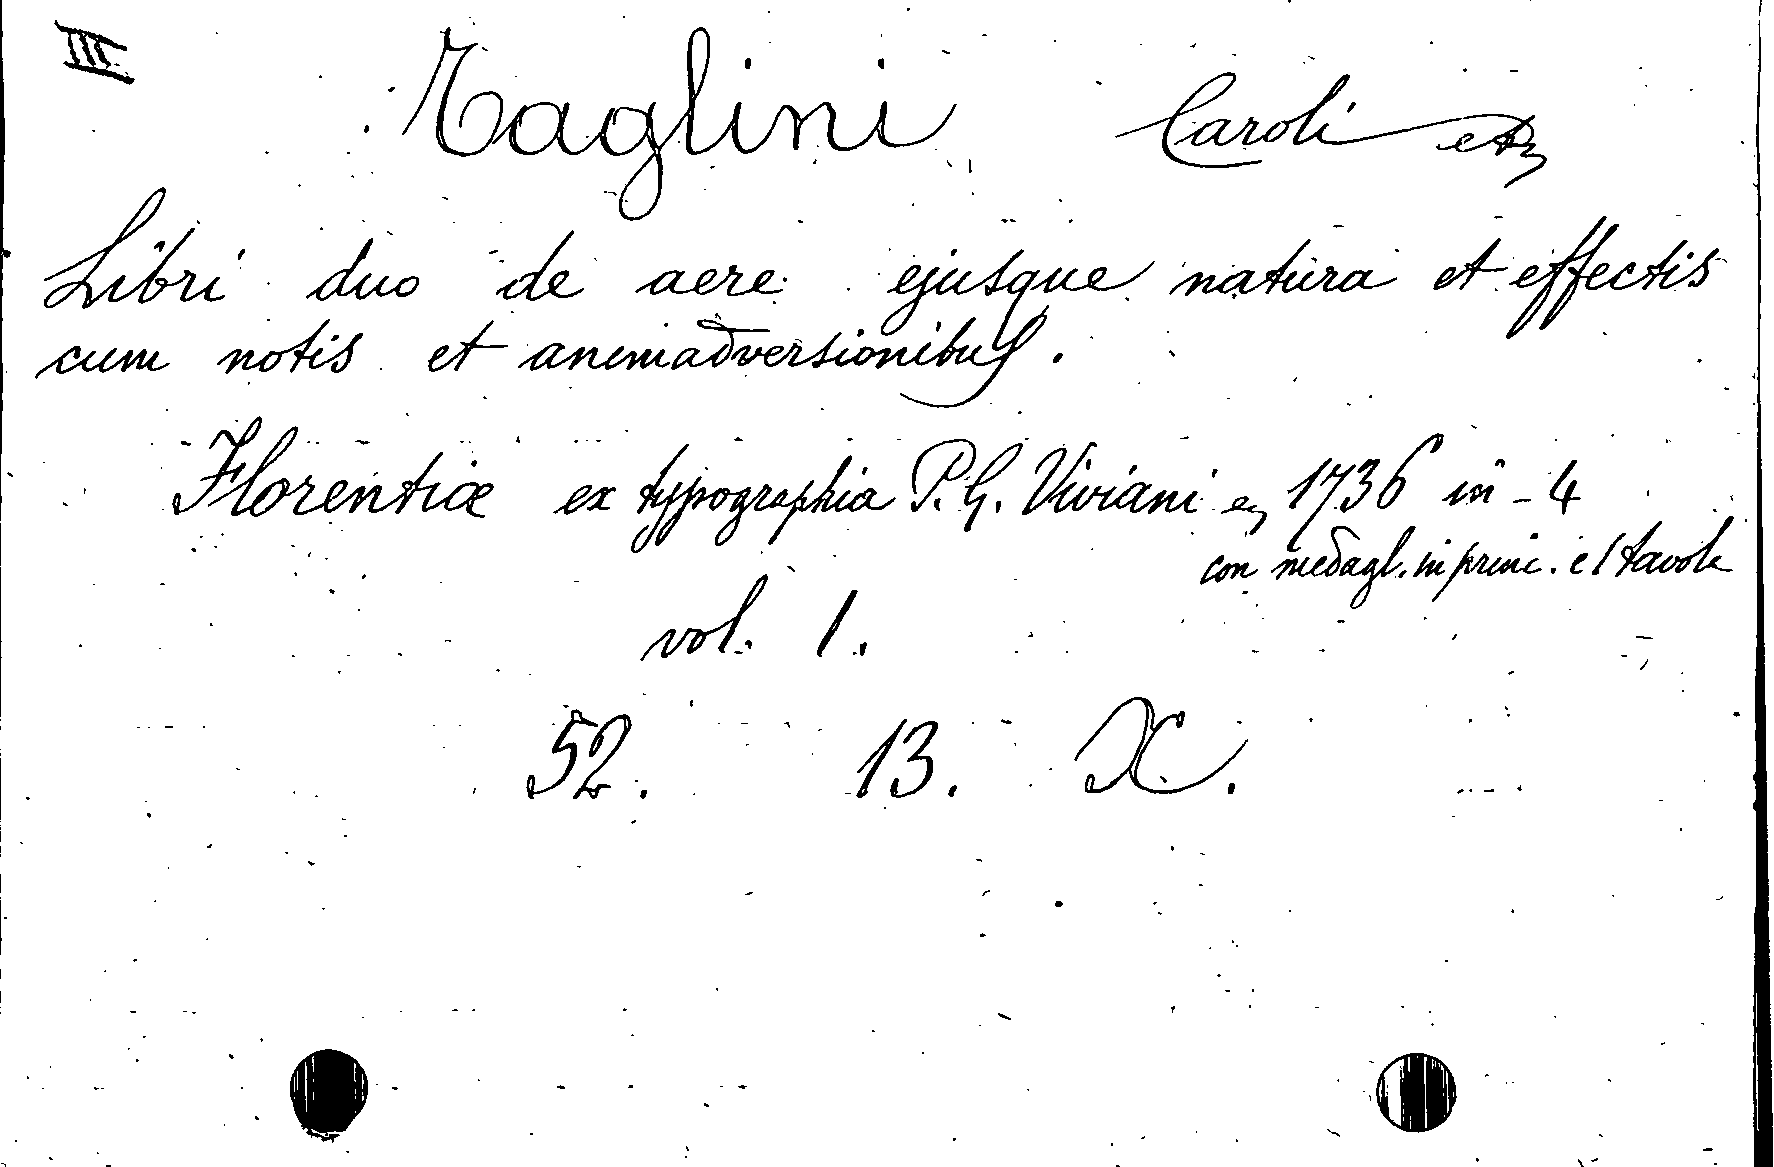 III
Taglini Caroli
Libri duo de aere ejusque natura et effectis
cum notis et animadversionibus.
Florentiæ ex typographia P. G. Viviani 1736 in - 4
con medagl. in princ. e 1 tavole
vol. 1.
52. 13. X.